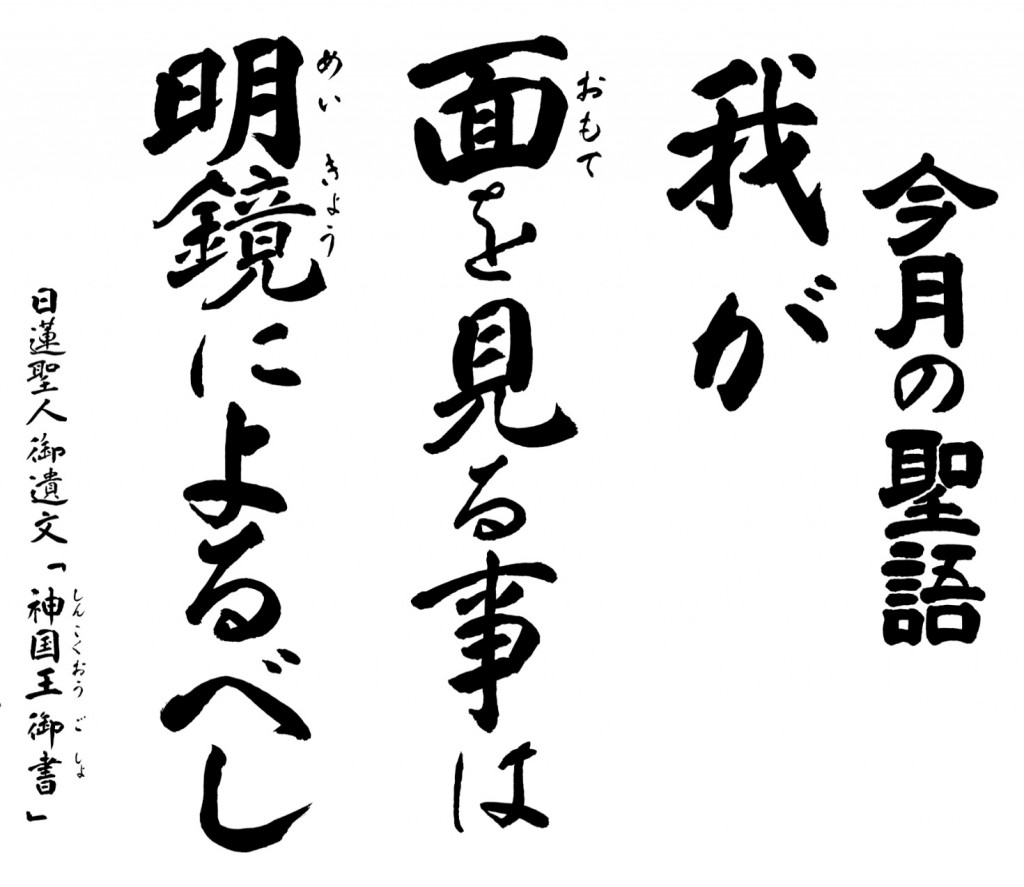 今月の聖語
我が
面を見る事は
おもて
明鏡によるべし
めいきょう
日蓮聖人御遺文「神国王御書」
しんこくおうごしょ